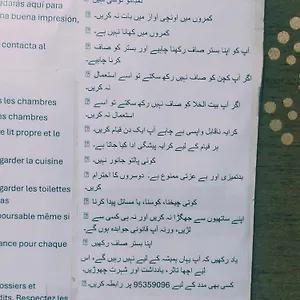 edarás aquí para
na buena impresión,
contacta al
s les chambres
s chambres
e lit propre et le
garder la cuisine
garder les toilettes
as
oursable même si
ance pour chaque
ossiers et
dits. Respectez les
کمروں میں اونچی آواز میں بات نہ کریں۔
کمروں میں کھانا نہیں ہے۔
آپ کو اپنا بستر صاف رکھنا چاہیے اور بستر کو صاف
کرنا چاہیے۔
اگر آپ کچن کو صاف نہیں رکھ سکتے تو اسے استعمال
نہ کریں۔
اگر آپ بیت الخلا کو صاف نہیں رکھ سکتے تو اسے
استعمال نہ کریں۔
کرایہ ناقابل واپسی ہے چاہے آپ ایک دن قیام کریں۔
ہر قیام کے لیے کرایہ پیشگی ادا کیا جاتا ہے۔
کوئی پالتو جانور نہیں۔
بدتمیزی اور بے عزتی ممنوع ہے۔ دوسروں کا احترام
کریں۔
کوئی چیخنا، کوسنا، یا مسائل پیدا کرنا
اپنے ساتھیوں سے جھگڑا نہ کریں اور نہ ہی کسی سے
لڑیں، ورنہ آپ قانونی جوابدہ ہوں گے۔
اپنا بستر صاف رکھیں
یاد رکھیں کہ آپ یہاں ہمیشہ کے لیے نہیں رہیں گے، اس
لیے اچھا تاثر، یادداشت اور شہرت چھوڑیں۔
کسی بھی مدد کے لیے 95359096 پر رابطہ کریں۔